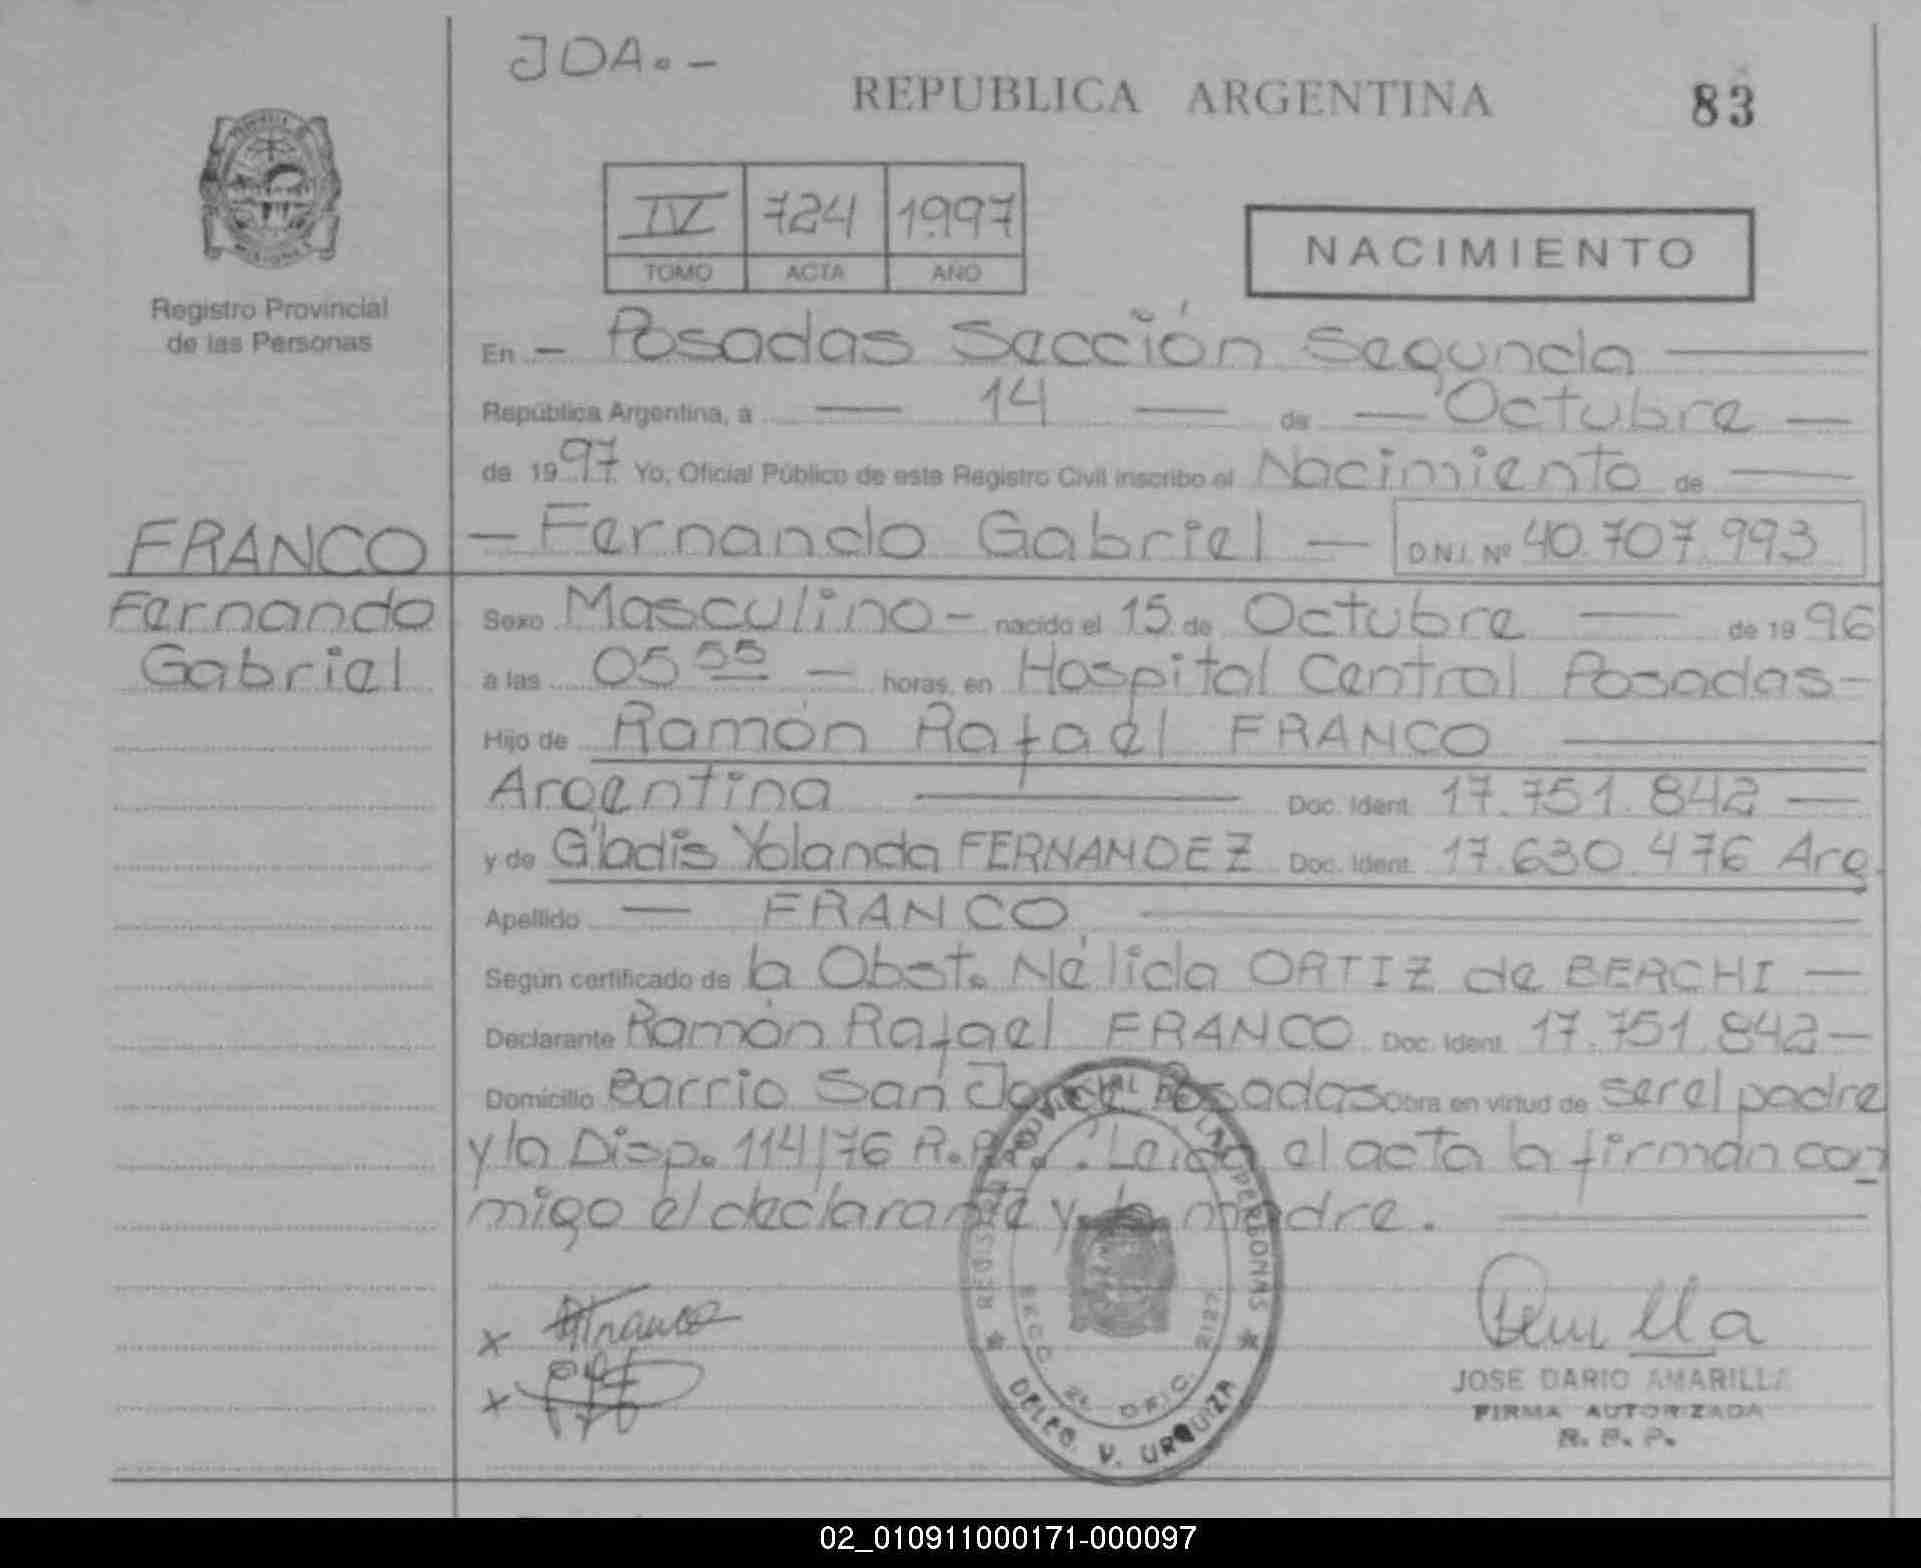 JDA.-
REPUBLICA ARGENTINA
83
IV 724 1997
TOMO ACTA AÑO
NACIMIENTO
Registro Provincial
de las Personas
En - Posadas Sección Segunda
República Argentina, a 14 de Octubre
de 1997 Yo, Oficial Público de este Registro Civil inscribo el Nacimiento de
FRANCO
Fernando
Gabriel
- Fernando Gabriel - D.N.I. Nº 40.707.993
Sexo Masculino - nacido el 15 de Octubre de 1996
a las 05 55 - horas, en Hospital Central Posadas-
Hijo de Ramón Rafael FRANCO
Argentina Doc. Ident. 17.751.842
y de Gladis Yolanda FERNANDEZ Doc. Ident. 17.630.476 Arg.
Apellido FRANCO
Según certificado de la Obst. Nélida ORTIZ de BERCHI
Declarante Ramón Rafael FRANCO Doc. Ident. 17.751.842-
Domicilio Barrio San Jorge Posadas Obra en virtud de ser el padre
y la Disp. 114/76 R.P.P. Leída el acta la firman con
migo el declarante y la madre.
REGISTRO PROVINCIAL DE LAS PERSONAS
SECC. 2ª OFIC. 2127
DELEG. V. URQUIZA
JOSE DARIO AMARILLA
FIRMA AUTORIZADA
R. P. P.
02_010911000171-000097